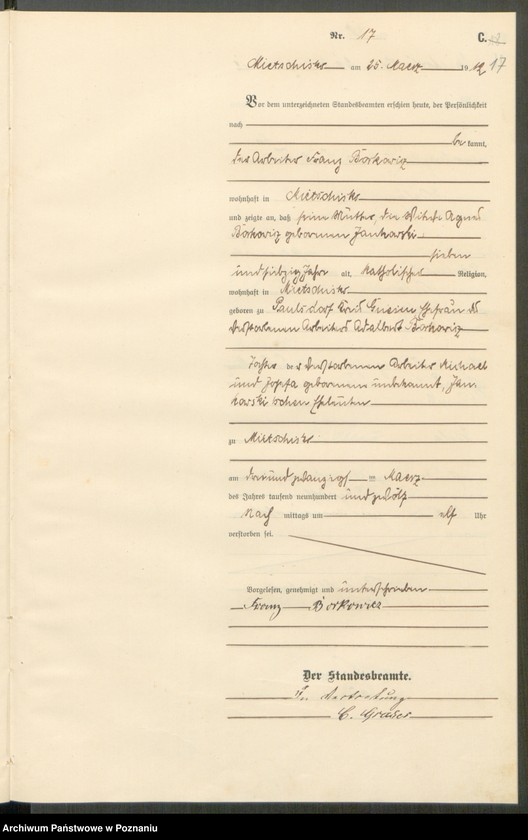 Nr. 17
C.
17
Mietschisko am 25. Maerz 1912
Vor dem unterzeichneten Standesbeamten erschien heute, der Persönlichkeit
nach
be kannt,
der Arbeiter Franz Borkowiz
wohnhaft in Mietschisko
und zeigte an, daß seine Mutter, die Witwe Agnes
Borkowiz geborenen Jankowski
sieben
undsiebzig Jahre alt, katholischer Religion,
wohnhaft in Mietschisko
geboren zu Paulsdorf Kreis Gnesen Ehefrau des
verstorbenen Arbeiters Adalbert Borkowiz
Tochter der verstorbenen Arbeiter Michael
und Josefa geborenen unbekannt, Jan-
kowski'schen Eheleuten
zu Mietschisko
am dreiundzwanzigsten Maerz
des Jahres tausend neunhundert und zwölf
Nach mittags um elf Uhr
verstorben sei.
Vorgelesen, genehmigt und unterschrieben
Franz Borkowicz
Der Standesbeamte.
In Vertretung
C. Graser
Archiwum Państwowe w Poznaniu